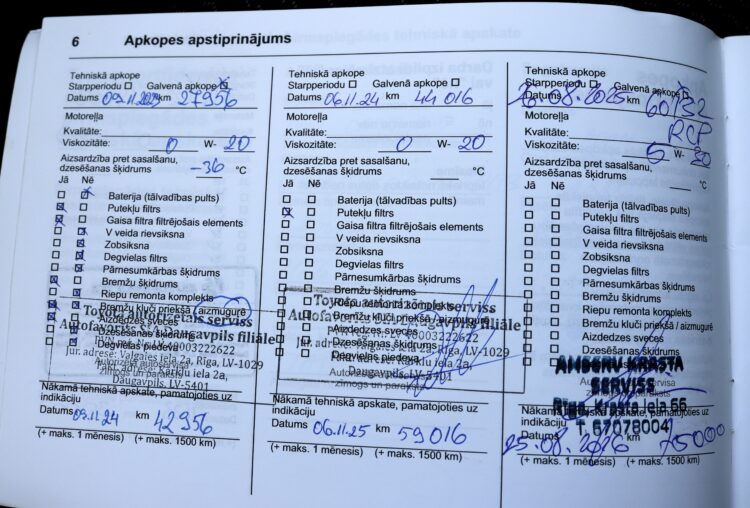 6 Apkopes apstiprinājums
Tehniskā apkope
Starpperiodu Galvenā apkope
Datums 09.11.2023 km 27956
Motoreļļa
Kvalitāte:
Viskozitāte: 0 W- 20
Aizsardzība pret sasalšanu,
dzesēšanas šķidrums -36 °C
Jā Nē
Baterija (tālvadības pults)
Putekļu filtrs
Gaisa filtra filtrējošais elements
V veida rievsiksna
Zobsiksna
Degvielas filtrs
Pārnesumkārbas šķidrums
Bremžu šķidrums
Riepu remonta komplekts
Bremžu kluči priekšā / aizmugurē
Aizdedzes sveces
Dzesēšanas šķidrums
Degvielas piedeva
Toyota autorizētais serviss
Autofavorīts SIA Daugavpils filiāle
40003222622
Jur. adrese: Valgales iela 2a, Rīga, LV-1029
iela 2a,
Daugavpils, LV-5401
Autorizētā autoservisa
zīmogs un paraksts
Nākamā tehniskā apkope, pamatojoties uz
indikāciju
Datums 09.11.24 km 42956
(+ maks. 1 mēnesis) (+ maks. 1500 km)
Tehniskā apkope
Starpperiodu Galvenā apkope
Datums 06.11.24 km 44016
Motoreļļa
Kvalitāte:
Viskozitāte: 0 W- 20
Aizsardzība pret sasalšanu,
dzesēšanas šķidrums °C
Jā Nē
Baterija (tālvadības pults)
Putekļu filtrs
Gaisa filtra filtrējošais elements
V veida rievsiksna
Zobsiksna
Degvielas filtrs
Pārnesumkārbas šķidrums
Bremžu šķidrums
Riepu remonta komplekts
Bremžu kluči priekšā / aizmugurē
Aizdedzes sveces
Dzesēšanas šķidrums
Degvielas piedeva
Daugavpils filiāle
40003222622
Valgales iela 2a, Rīga, LV-1029
iela 2a,
Daugavpils, LV-5401
zīmogs un paraksts
Nākamā tehniskā apkope, pamatojoties uz
indikāciju
Datums 06.11.25 km 59016
(+ maks. 1 mēnesis) (+ maks. 1500 km)
Tehniskā apkope
Starpperiodu Galvenā apkope
Datums 08.2025 km
Motoreļļa
Kvalitāte:
Viskozitāte: W-
Aizsardzība pret sasalšanu,
dzesēšanas šķidrums °C
Jā Nē
Baterija (tālvadības pults)
Putekļu filtrs
Gaisa filtra filtrējošais elements
V veida rievsiksna
Zobsiksna
Degvielas filtrs
Pārnesumkārbas šķidrums
Bremžu šķidrums
Riepu remonta komplekts
Bremžu kluči priekšā / aizmugurē
Aizdedzes sveces
Dzesēšanas šķidrums
KRASTA
SERVISS
Krasta iela 66
T. 67078004
Nākamā tehniskā apkope, pamatojoties uz
indikāciju
Datums 25.08.2026 km 75000
(+ maks. 1 mēnesis) (+ maks. 1500 km)